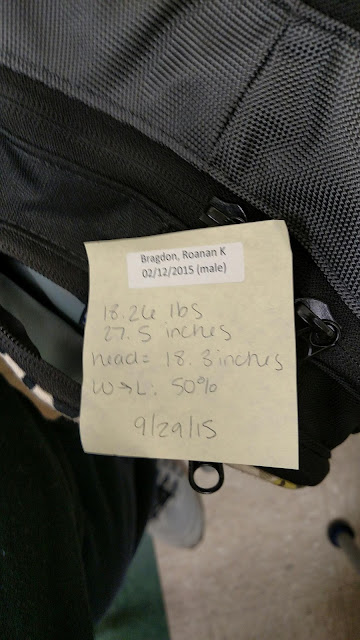 Bragdon, Roanan K
02/12/2015 (male)
18.26 lbs
27.5 inches
head= 18.3 inches
W→L: 50%
9/29/15